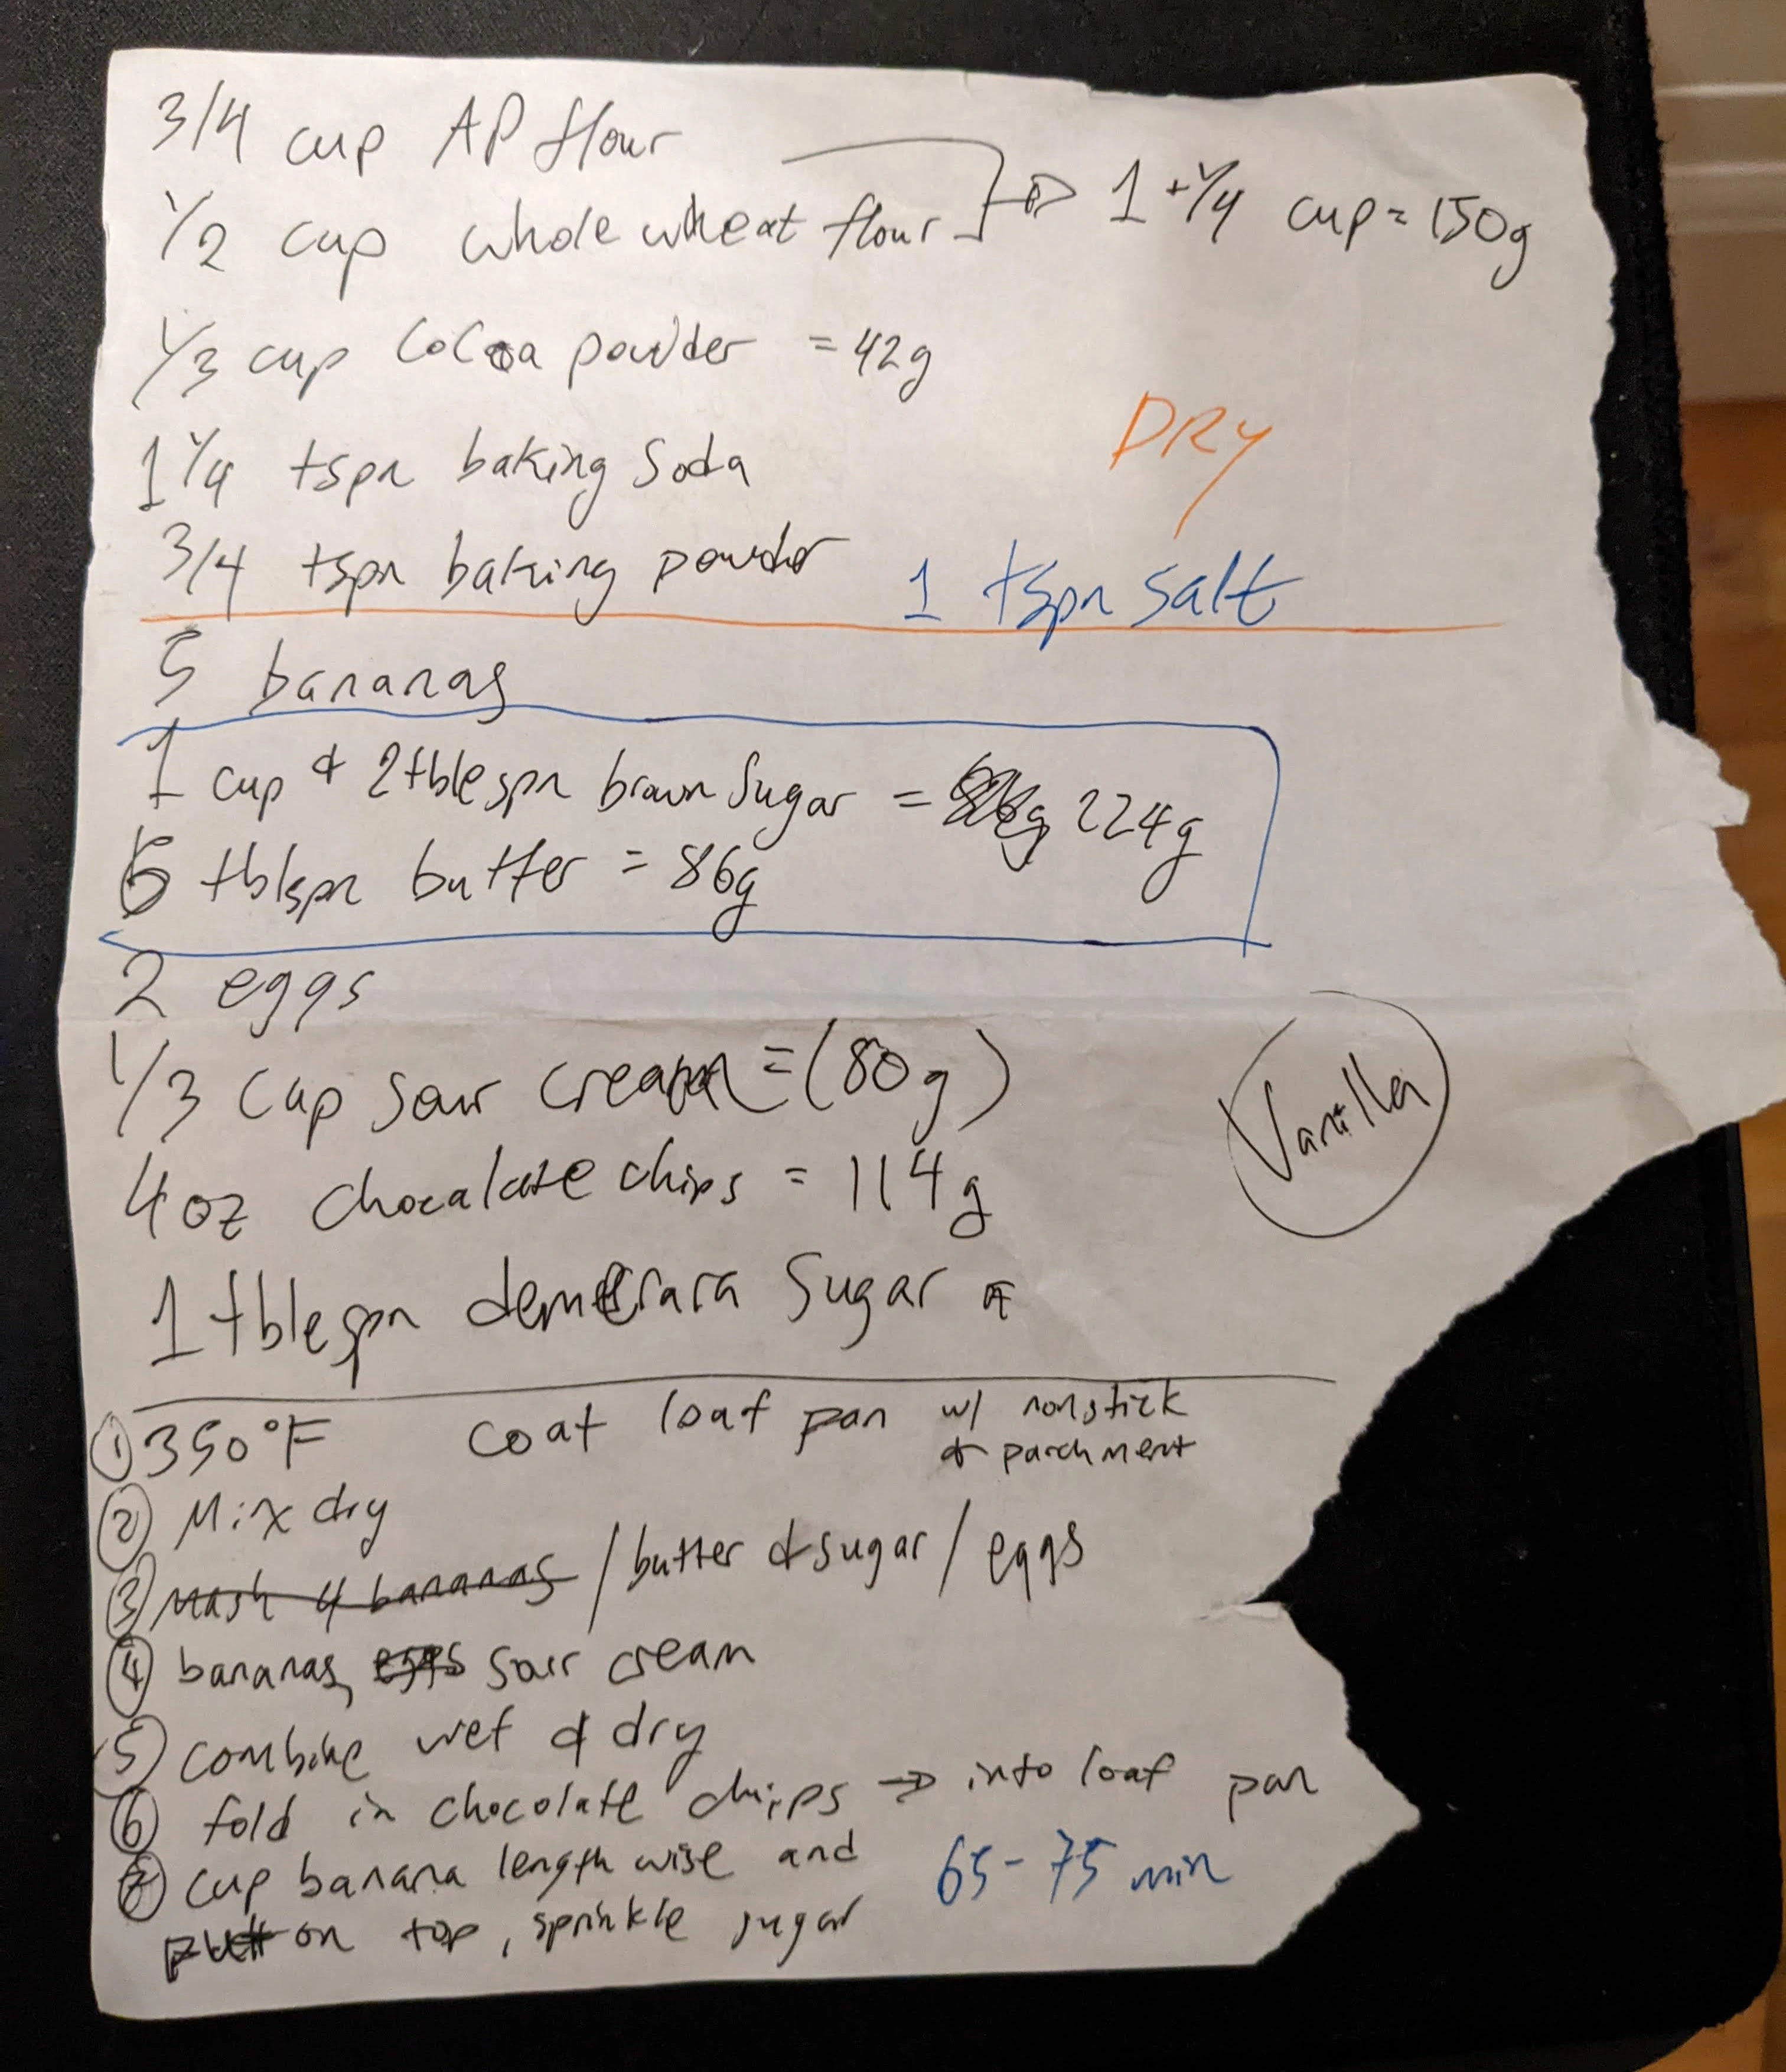 3/4 cup AP flour
1/2 cup whole wheat flour → 1 + 1/4 cup = 150g
1/3 cup Cocoa powder = 42g
1 1/4 tspn baking soda
DRY
3/4 tspn baking powder 1 tspn salt
5 bananas
1 cup & 2 tblespn brown sugar = 224g
6 tblspn butter = 86g
2 eggs
1/3 cup sour cream = (80g)
Vanilla
4 oz chocalate chips = 114g
1 tblespn demerara sugar
① 350°F coat loaf pan w/ nonstick
& parchment
② Mix dry
③ mash 4 bananas / butter & sugar / eggs
④ bananas, eggs sour cream
⑤ combine wet & dry
⑥ fold in chocolate chips → into loaf pan
⑦ cup banana length wise and 65-75 min
put on top, sprinkle sugar